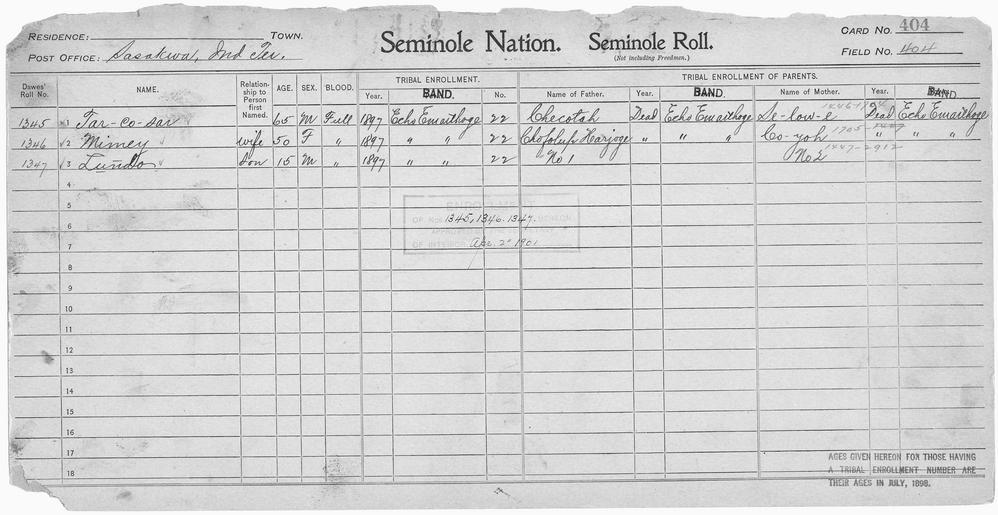 RESIDENCE: TOWN.
POST OFFICE: Sasakwa, Ind Ter.
Seminole Nation. Seminole Roll.
(Not including Freedmen.)
CARD NO. 404
FIELD NO. 404
Dawes' Roll No. NAME. Relationship to Person first Named. AGE. SEX. BLOOD. TRIBAL ENROLLMENT. TRIBAL ENROLLMENT OF PARENTS.
Year. BAND. No. Name of Father. Year. BAND. Name of Mother. Year. BAND.
1345 1 Tar-co-sar 65 M Full 1897 Echo Emaithoge 22 Checotah Dead Echo Emaithoge Se-low-e Dead Echo Emaithoge
1346 2 Mimey wife 50 F " 1897 " " 22 Chofolup Harjoge " " " Co-yoh 1705 " " "
1347 3 Lundo Son 15 M " 1897 " " 22 No 1 No 2 1447-2912
4
5
6
7
8
9
10
11
12
13
14
15
16
17
18
ENROLLMENT
OF NOS. 1345, 1346. 1347. HEREON
APPROVED BY THE SECRETARY
OF INTERIOR Apr. 2" 1901
AGES GIVEN HEREON FOR THOSE HAVING
A TRIBAL ENROLLMENT NUMBER ARE
THEIR AGES IN JULY, 1898.